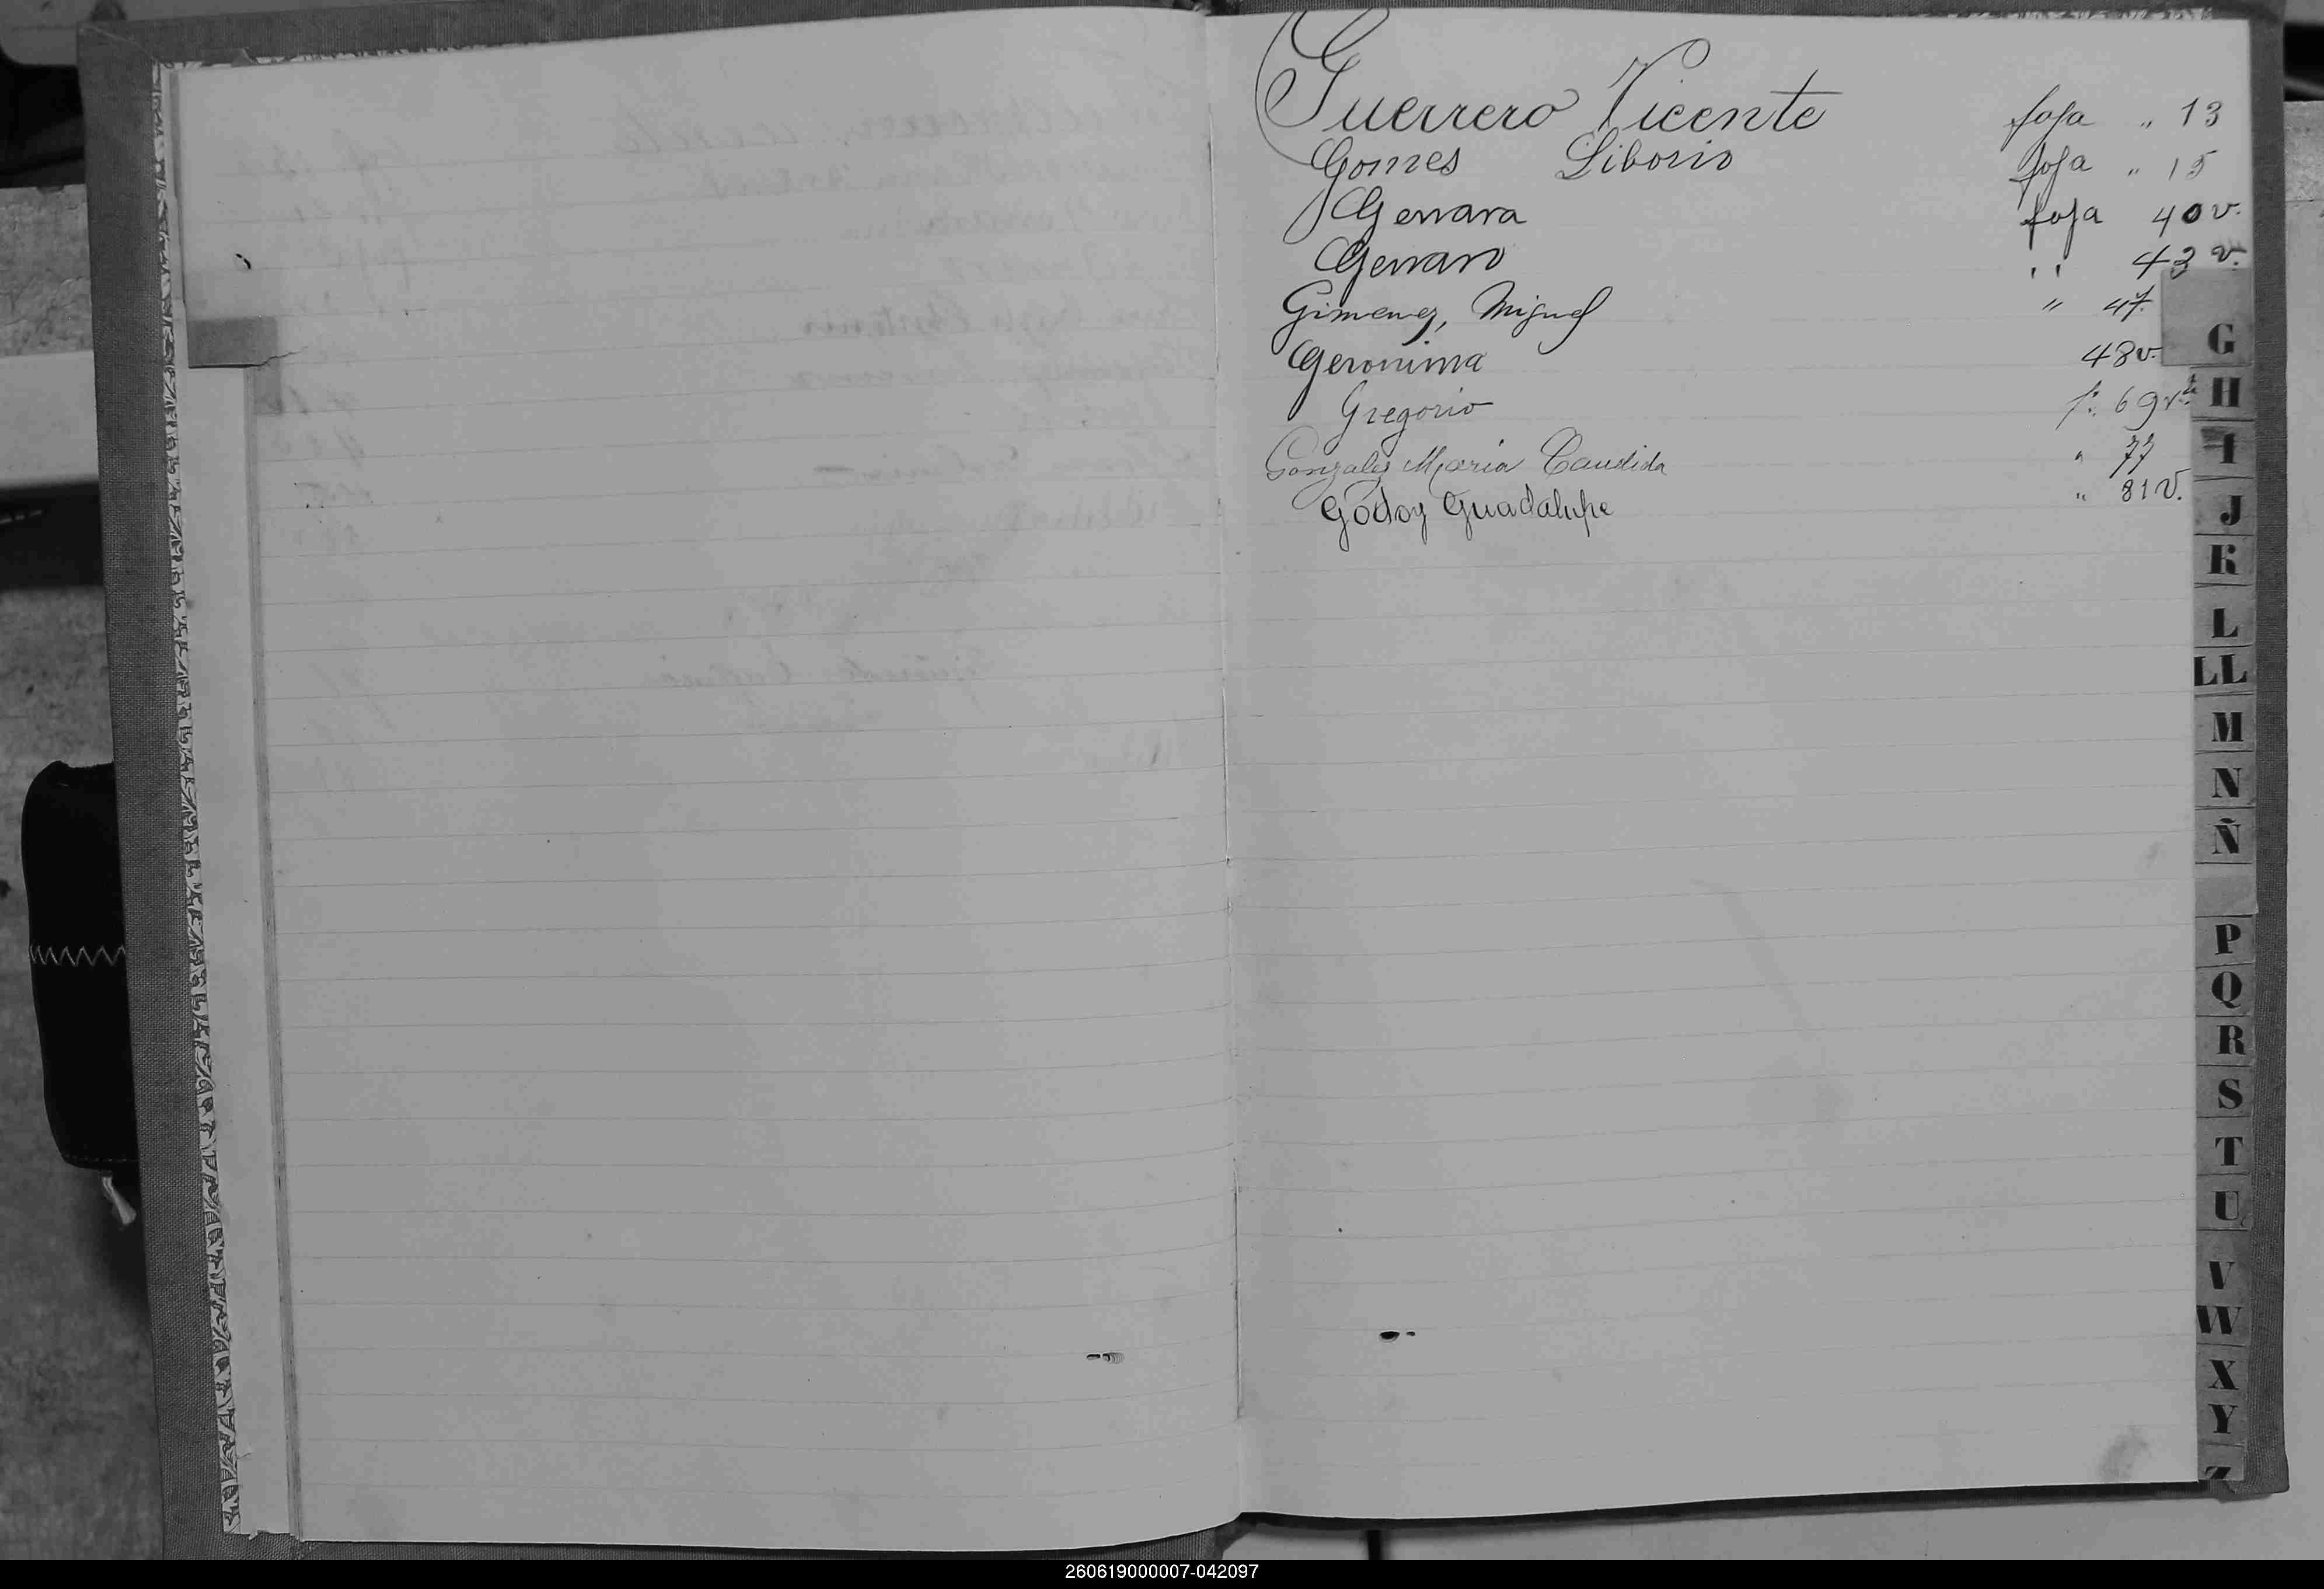 Guerrero Vicente foja „ 13
Gomes Liborio foja „ 15
Genara foja 40 v.
Genaro „ 43 v.
Gimenez, Miguel „ 47
Geronima 48 v.
Gregorio f. 69 vta
Gonzales Maria Candida „ 77
Godoy Guadalupe „ 81 v.
G
H
I
J
K
L
LL
M
N
Ñ
P
Q
R
S
T
U
V
W
X
Y
Z
260619000007-042097